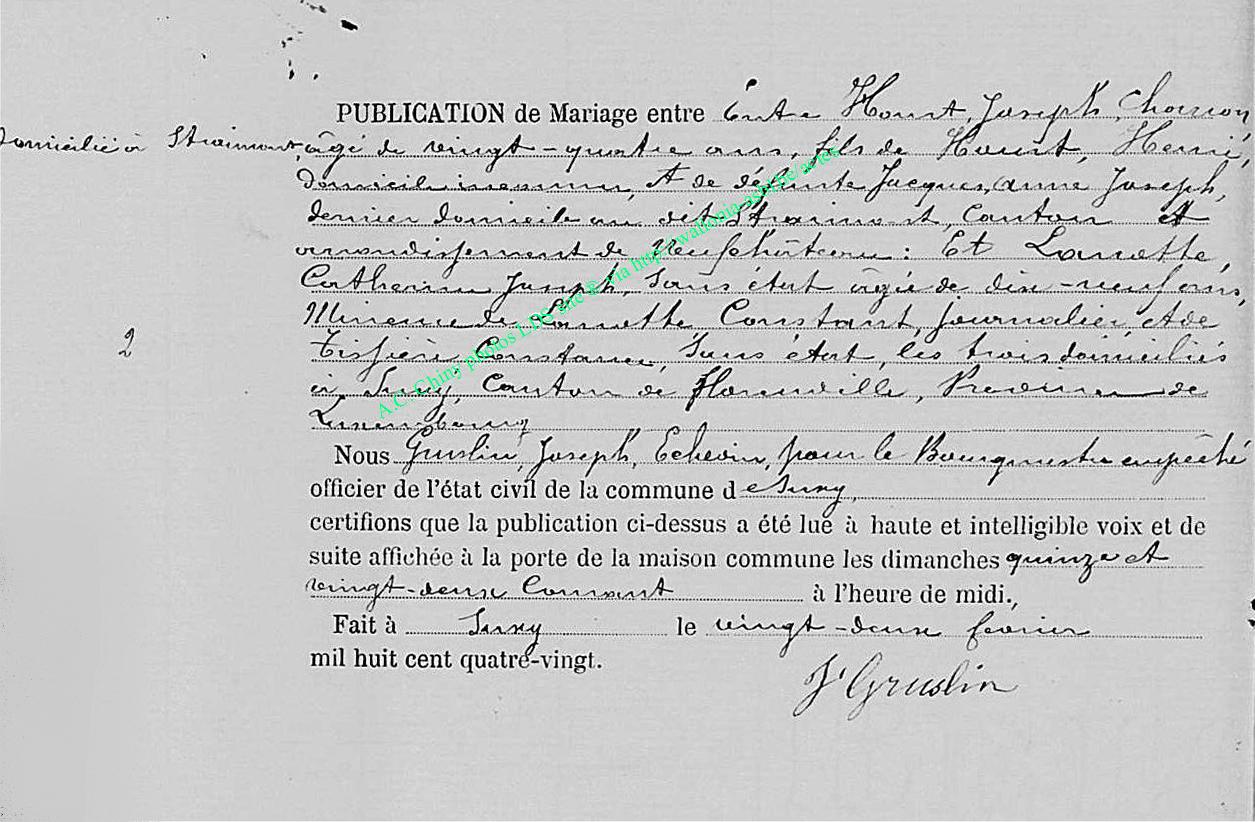 PUBLICATION de Mariage entre Entre Hount, Joseph, Charron,
Domicilié à Straimont, âgé de vingt-quatre ans, fils de Hount, Henri,
et de défunte Jacques, Anne Joseph,
dernier domicile au dit Straimont, Canton et
arrondissement de Neufchâteau : Et Lamotte,
Catherine Joseph, sans état âgée de dix-neuf ans,
Mineure de Lamotte, Constant, journalier, et de
Constance, sans état, les trois domiciliés
à Suxy, Canton de Florenville, Province de
Luxembourg
2
Nous Gruslin, Joseph, Echevin, pour le Bourgmestre empêché
officier de l'état civil de la commune de Suxy,
certifions que la publication ci-dessus a été lue à haute et intelligible voix et de
suite affichée à la porte de la maison commune les dimanches quinze et
vingt-deux Courant à l'heure de midi.,
Fait à Suxy le vingt-deux fevrier
mil huit cent quatre-vingt.
J Gruslin
A.C. Chiny photos LDS site © via http://wallonia-asbl.be/actes